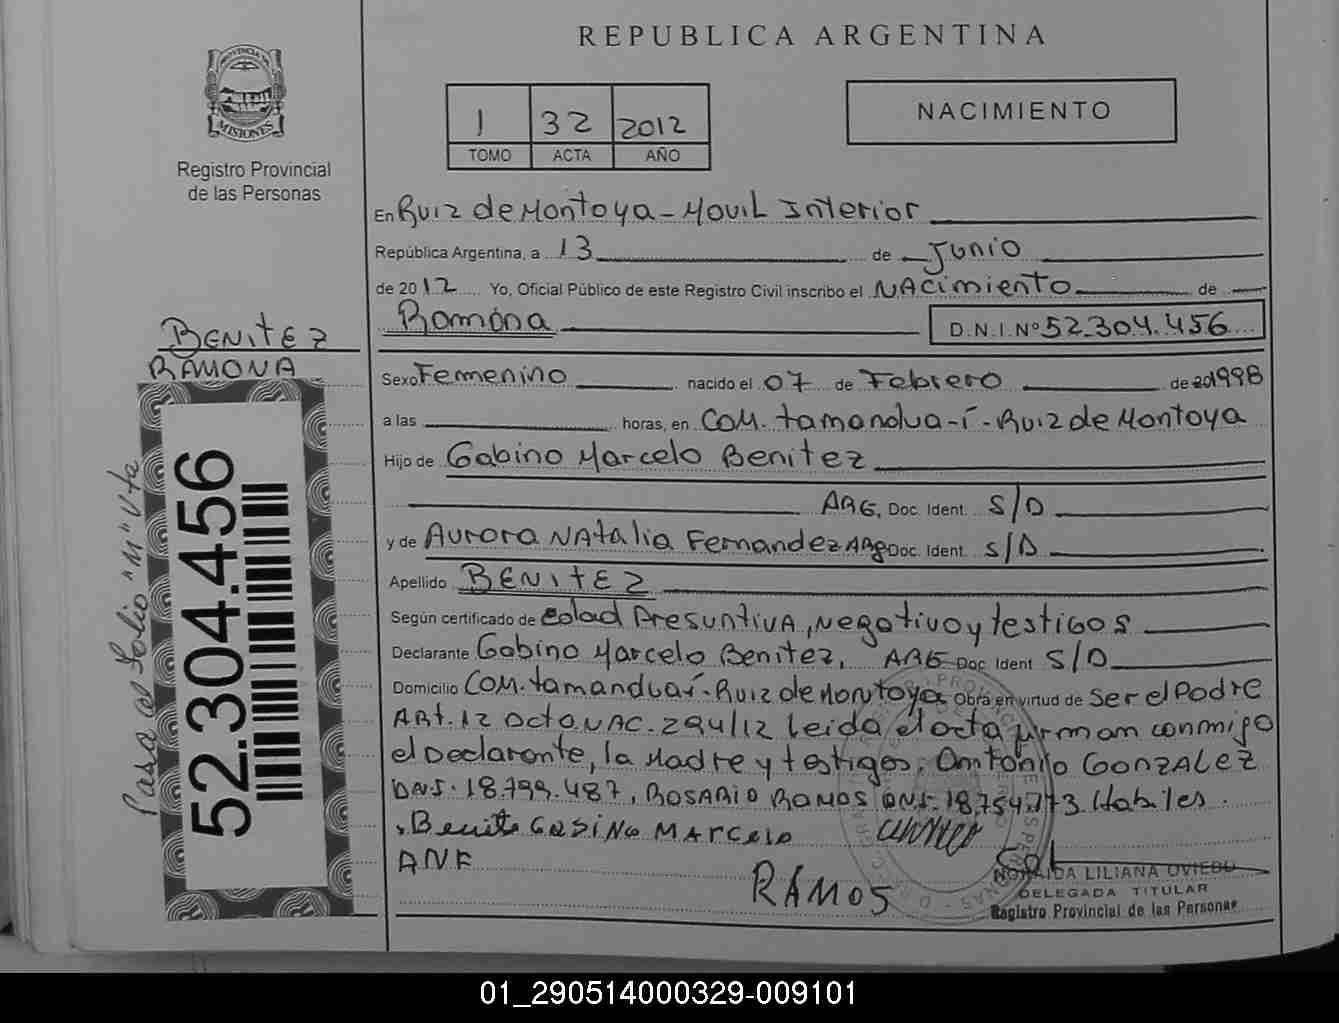 REPUBLICA ARGENTINA
PROVINCIA DE
MISIONES
Registro Provincial
de las Personas
1 32 2012
TOMO ACTA AÑO
NACIMIENTO
En Ruiz de Montoya - Movil Interior
República Argentina, a 13 de Junio
de 2012 Yo, Oficial Público de este Registro Civil inscribo el Nacimiento de
Ramona D.N.I.Nº 52.304.456
BENITEZ
RAMONA
Sexo Femenino nacido el 07 de Febrero de 201998
a las horas, en COM. tamandua-í - Ruiz de Montoya
Hijo de Gabino Marcelo Benitez
ARG. Doc. Ident. S/D
y de Aurora Natalia Fernandez ARg Doc. Ident. S/D
Apellido BENITEZ
Según certificado de edad Presuntiva, Negativo y testigos
Declarante Gabino Marcelo Benitez, ARG Doc. Ident S/D
Domicilio COM. tamanduaí - Ruiz de Montoya Obra en virtud de Ser el Padre
Art. 12 Dcto. NAC. 294/12 Leida el acta firman conmigo
el Declarante, la Madre y testigos, Antonio GONZALEZ
DNI. 18.799.487, ROSARIO RAMOS DNI. 18.754.773 Habiles.
Benite GABINO MARCELO
ANF
RAMOS
LILIANA OVIEDO
DELEGADA TITULAR
Registro Provincial de las Personas
52.304.456
Pasa al folio "M" Vta
01_290514000329-009101